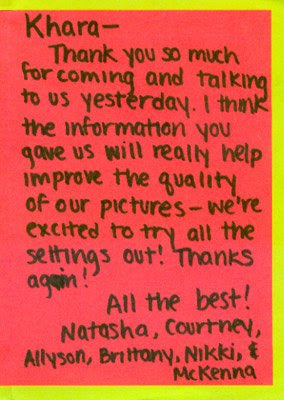 Khara—
Thank you so much
for coming and talking
to us yesterday. I think
the information you
gave us will really help
improve the quality
of our pictures - we're
excited to try all the
settings out! Thanks
again!
All the best!
Natasha, Courtney,
Allyson, Brittany, Nikki, &
McKenna